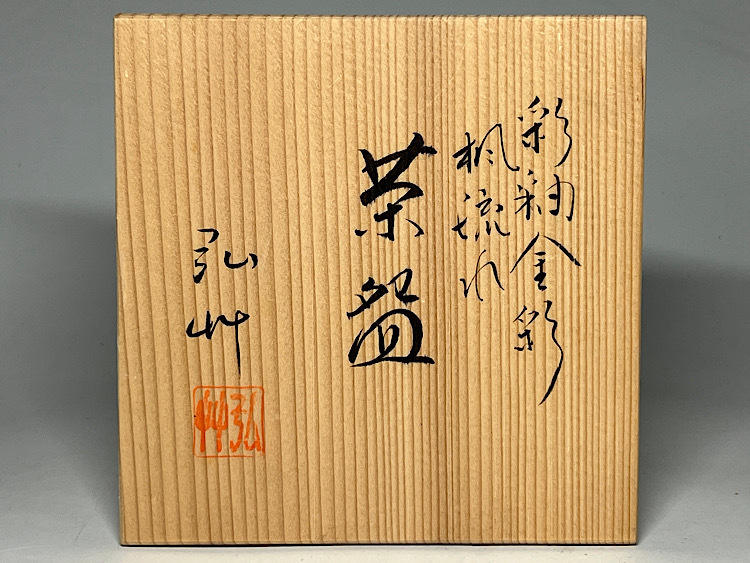 彩釉金彩
楓流れ
茶盌
弘艸
弘艸